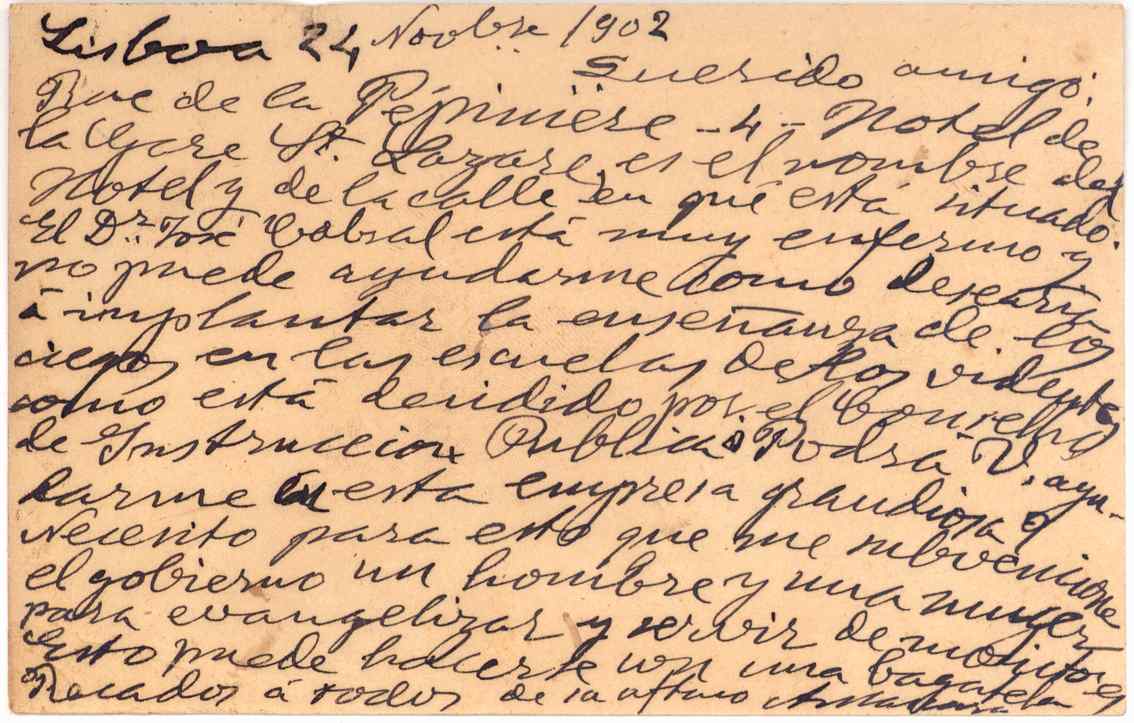 Lisboa 24 Novbre 1902
Querido amigo:
Rue de la Pépinière -4- Hotel de
la Gare St. Lazare, es el nombre del
Hotel y de la calle en que está situado.
El Dr. José Cobral está muy enfermo y
no puede ayudarme como desearía
á implantar la enseñanza de los
ciegos en las escuelas de los videntes
como está decidido por el Consejo
de Instruccion Publica. Podrá V. ayu-
darme en esta empresa grandiosa?
Necesito para esto que me subvencione
el gobierno un hombre y una muger
para evangelizar y servir de monitores
Esto puede hacerse con una bagatela
Recados á todos de su affmo